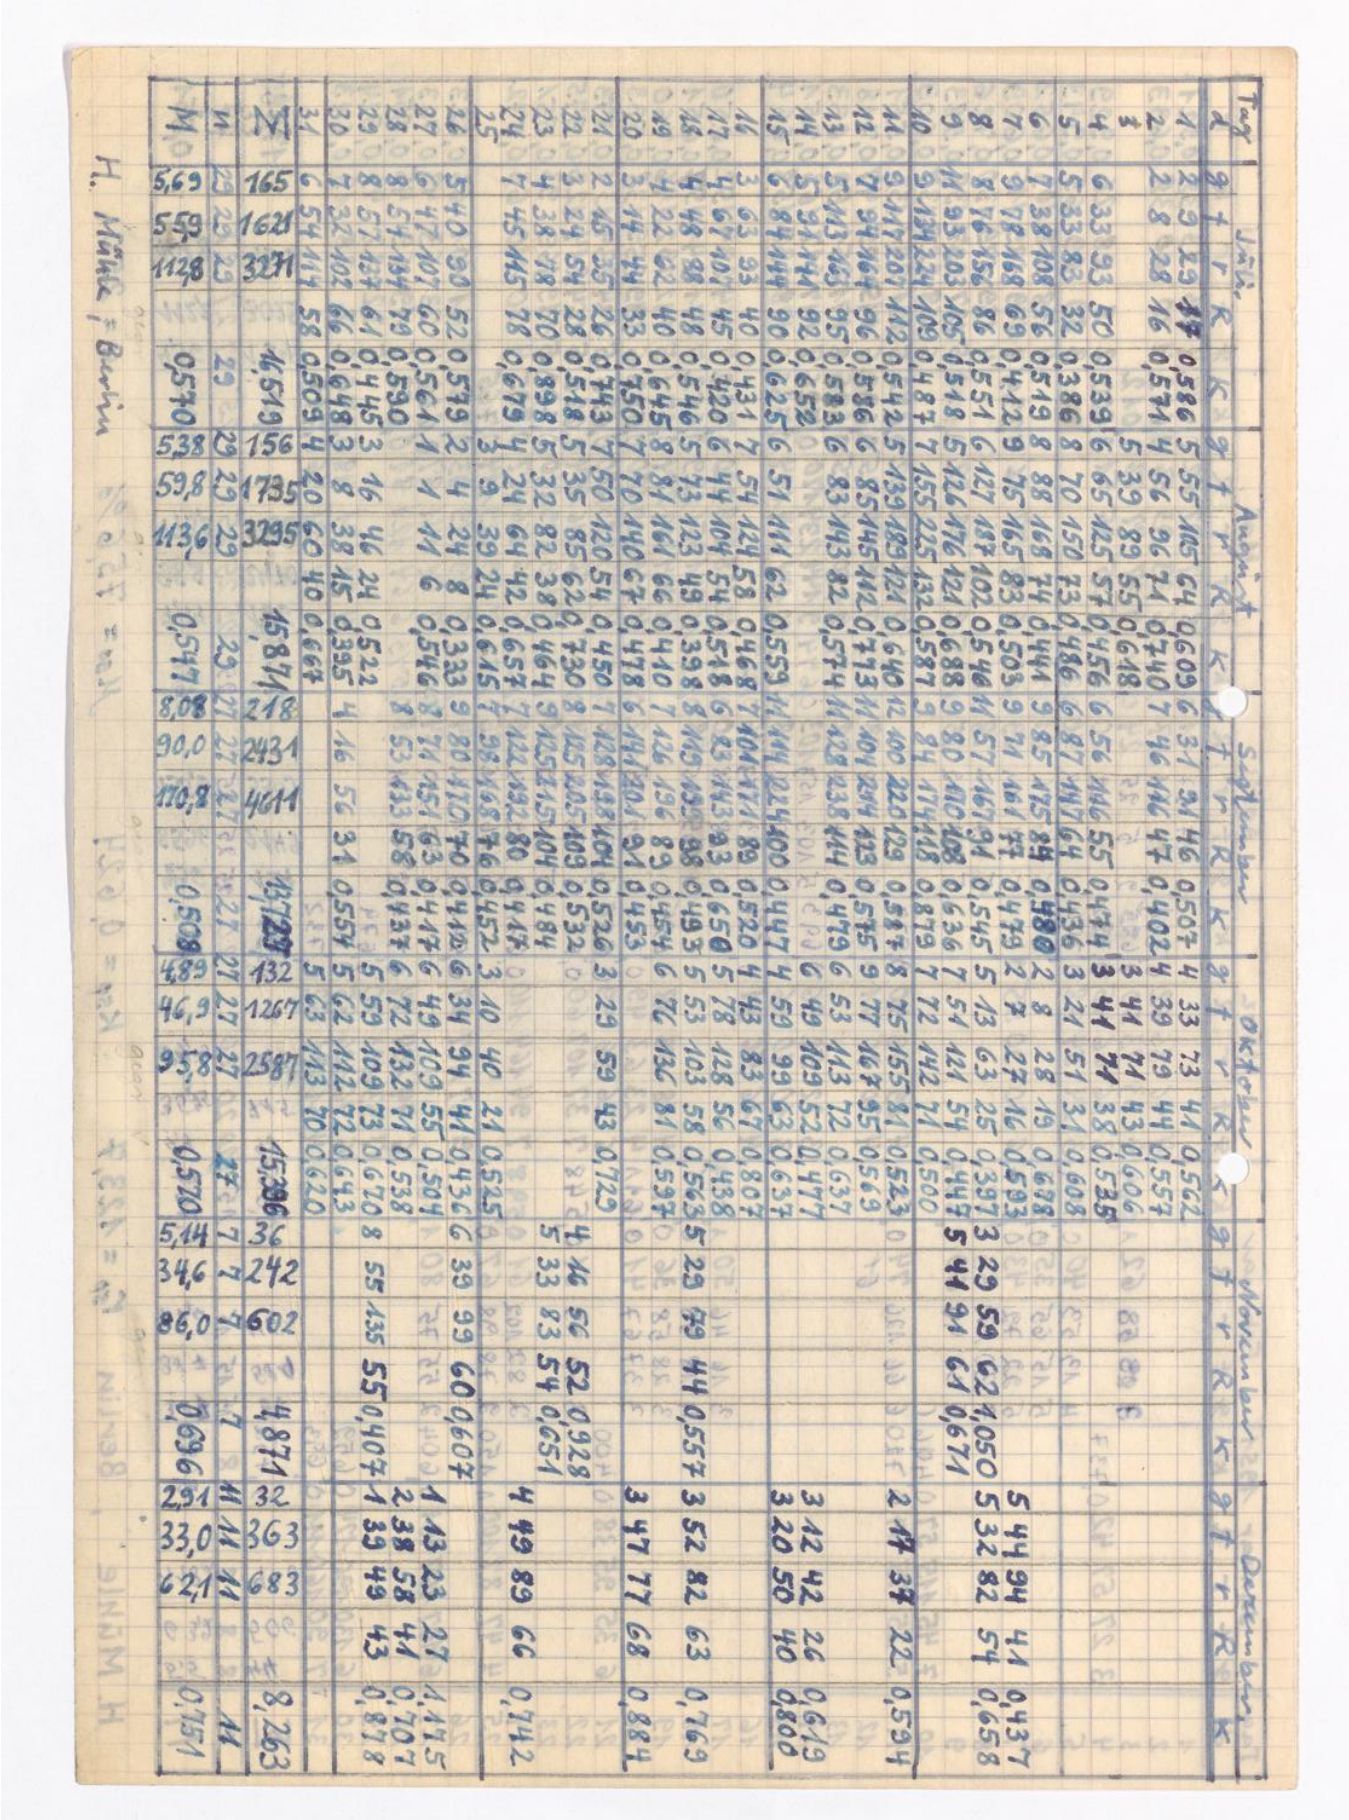 Tag Juli, August September Oktober November Dezember,
d g f r R k g f r R k g f r R k g f r R k g f r R k g f r R k
1 2 9 29 17 0,586 5 55 105 64 0,609 6 31 91 46 0,507 4 33 73 41 0,562
2 2 8 28 16 0,571 4 56 96 71 0,740 7 46 116 47 0,402 4 39 79 44 0,557
3 5 39 89 55 0,618 3 41 71 43 0,606
4 6 33 93 50 0,539 6 65 125 57 0,456 6 56 116 55 0,474 3 41 71 38 0,535
5 5 33 83 32 0,386 8 70 150 73 0,486 6 87 147 64 0,436 3 21 51 31 0,608
6 7 38 108 56 0,519 8 88 168 74 0,441 9 85 175 84 0,480 2 8 28 19 0,678
7 9 78 168 69 0,412 9 75 165 83 0,503 9 71 161 77 0,479 2 7 27 16 0,593 5 44 94 41 0,437
8 8 76 156 86 0,551 6 127 187 102 0,546 11 57 167 91 0,545 5 13 63 25 0,397 3 29 59 62 1,050 5 32 82 54 0,658
9 11 93 203 105 0,518 5 126 176 121 0,688 9 80 170 108 0,636 7 51 121 54 0,447 5 41 91 61 0,671
10 9 134 224 109 0,487 7 155 225 132 0,587 9 84 174 118 0,879 7 72 142 71 0,500
11 9 117 207 112 0,542 5 139 189 121 0,640 12 100 220 129 0,587 8 75 155 81 0,523 2 17 37 22 0,594
12 7 94 164 96 0,586 6 85 145 112 0,773 11 104 214 123 0,575 9 77 167 95 0,569
13 5 113 163 95 0,583 6 83 143 82 0,574 11 128 238 114 0,479 6 53 113 72 0,637
14 5 91 141 92 0,652 6 49 109 52 0,477 3 12 42 26 0,619
15 6 84 144 90 0,625 6 51 111 62 0,559 11 114 224 100 0,447 4 59 99 63 0,637 3 20 50 40 0,800
16 3 63 93 40 0,431 7 54 124 58 0,468 7 101 171 89 0,520 4 43 83 67 0,807
17 4 67 107 45 0,420 6 44 104 54 0,518 6 83 143 93 0,650 5 78 128 56 0,438
18 4 48 88 48 0,546 5 73 123 49 0,398 8 119 199 98 0,493 5 53 103 58 0,563 5 29 79 44 0,557 3 52 82 63 0,769
19 4 22 62 40 0,645 8 81 161 66 0,410 7 126 196 89 0,454 6 76 136 81 0,597
20 3 14 44 33 0,750 7 70 140 67 0,478 6 141 201 91 0,453 3 47 77 68 0,884
21 2 15 35 26 0,743 7 50 120 54 0,450 7 128 198 104 0,526 3 29 59 43 0,729
22 3 24 54 28 0,518 5 35 85 62 0,730 8 125 205 109 0,532 4 16 56 52 0,928
23 4 38 78 70 0,898 5 32 82 38 0,464 9 125 215 104 0,484 5 33 83 54 0,651
24 7 45 115 78 0,679 4 24 64 42 0,657 7 122 192 80 0,417 4 49 89 66 0,742
25 3 9 39 24 0,615 7 98 168 76 0,452 3 10 40 21 0,525
26 5 40 90 52 0,579 2 4 24 8 0,333 9 80 170 70 0,412 6 34 94 41 0,436 6 39 99 60 0,607
27 6 47 107 60 0,561 1 1 11 6 0,546 8 71 151 63 0,417 6 49 109 55 0,504 1 13 23 27 1,175
28 8 54 134 79 0,590 8 53 133 58 0,437 6 72 132 71 0,538 2 38 58 41 0,707
29 8 57 137 61 0,445 3 16 46 24 0,522 5 59 109 73 0,670 8 55 135 55 0,407 1 39 49 43 0,878
30 7 32 102 66 0,648 3 8 38 15 0,395 4 16 56 31 0,554 5 62 112 72 0,643
31 6 54 114 58 0,509 4 20 60 40 0,667 5 63 113 70 0,620
Σ 165 1621 3271 16,519 156 1735 3295 15,871 218 2431 4611 13,729 132 1267 2587 15,396 36 242 602 4,871 32 363 683 8,263
n 29 29 29 29 29 29 29 29 27 27 27 27 27 27 27 27 7 7 7 7 11 11 11 11
M 5,69 55,9 112,8 0,570 5,38 59,8 113,6 0,547 8,08 90,0 170,8 0,508 4,89 46,9 95,8 0,570 5,14 34,6 86,0 0,696 2,91 33,0 62,1 0,751
H. Mühle, Berlin